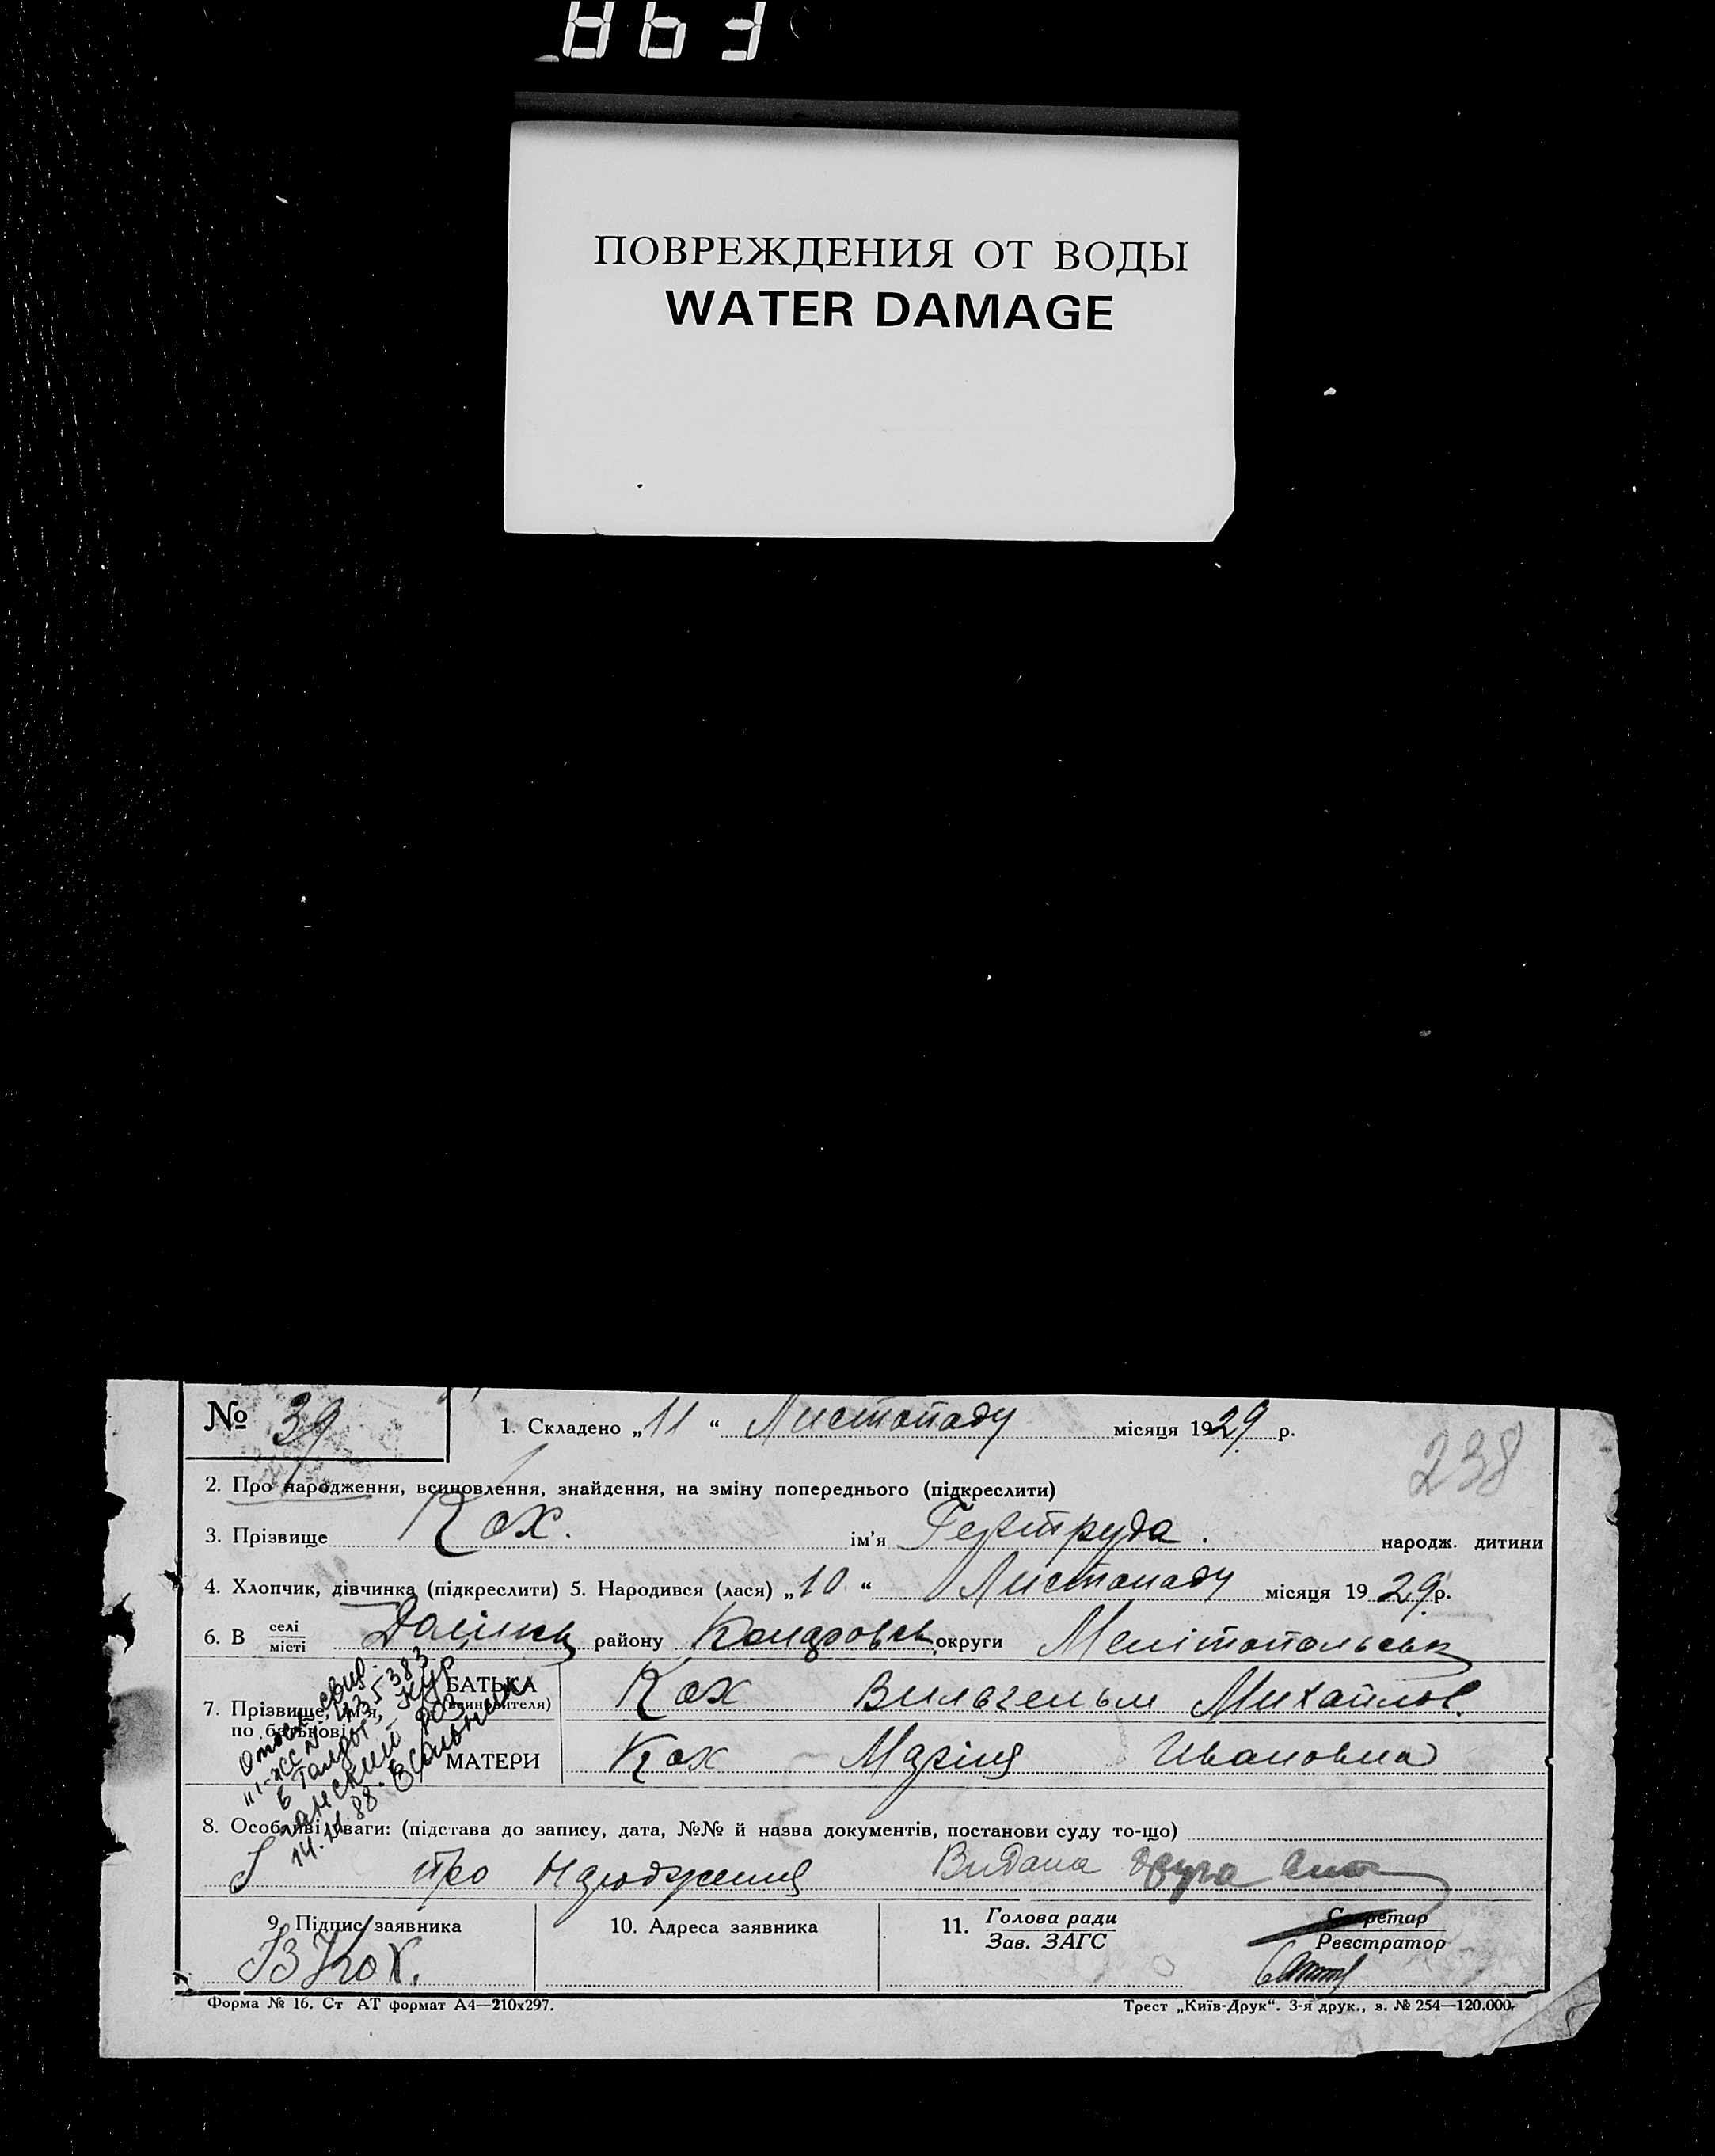 ПОВРЕЖДЕНИЯ ОТ ВОДЫ
WATER DAMAGE
№ 39
1. Складено „11“ Листопаду місяця 1929 р.
238
2. Про народження, всиновлення, знайдення, на зміну попереднього (підкреслити)
3. Прізвище Кох. ім'я Гертруда. народж. дитини
4. Хлопчик, дівчинка (підкреслити) 5. Народився (лася) „10“ Листопаду місяця 1929 р.
6. В селі місті району округи Мелітопольськ
7. Прізвище, ім'я, по батькові
БАТЬКА Кох Вильгельм Михайлов.
МАТЕРИ Кох Марія Ивановна
8. Особливі уваги: (підстава до запису, дата, №№ й назва документів, постанови суду то-що)
про народження Видана друга
9. Підпис заявника
10. Адреса заявника
11. Голова ради
Зав. ЗАГС
Секретар
Реєстратор
В Кох.
Форма № 16. Ст АТ формат А4—210x297.
Трест „Київ-Друк“. 3-я друк., з. № 254—120.000.